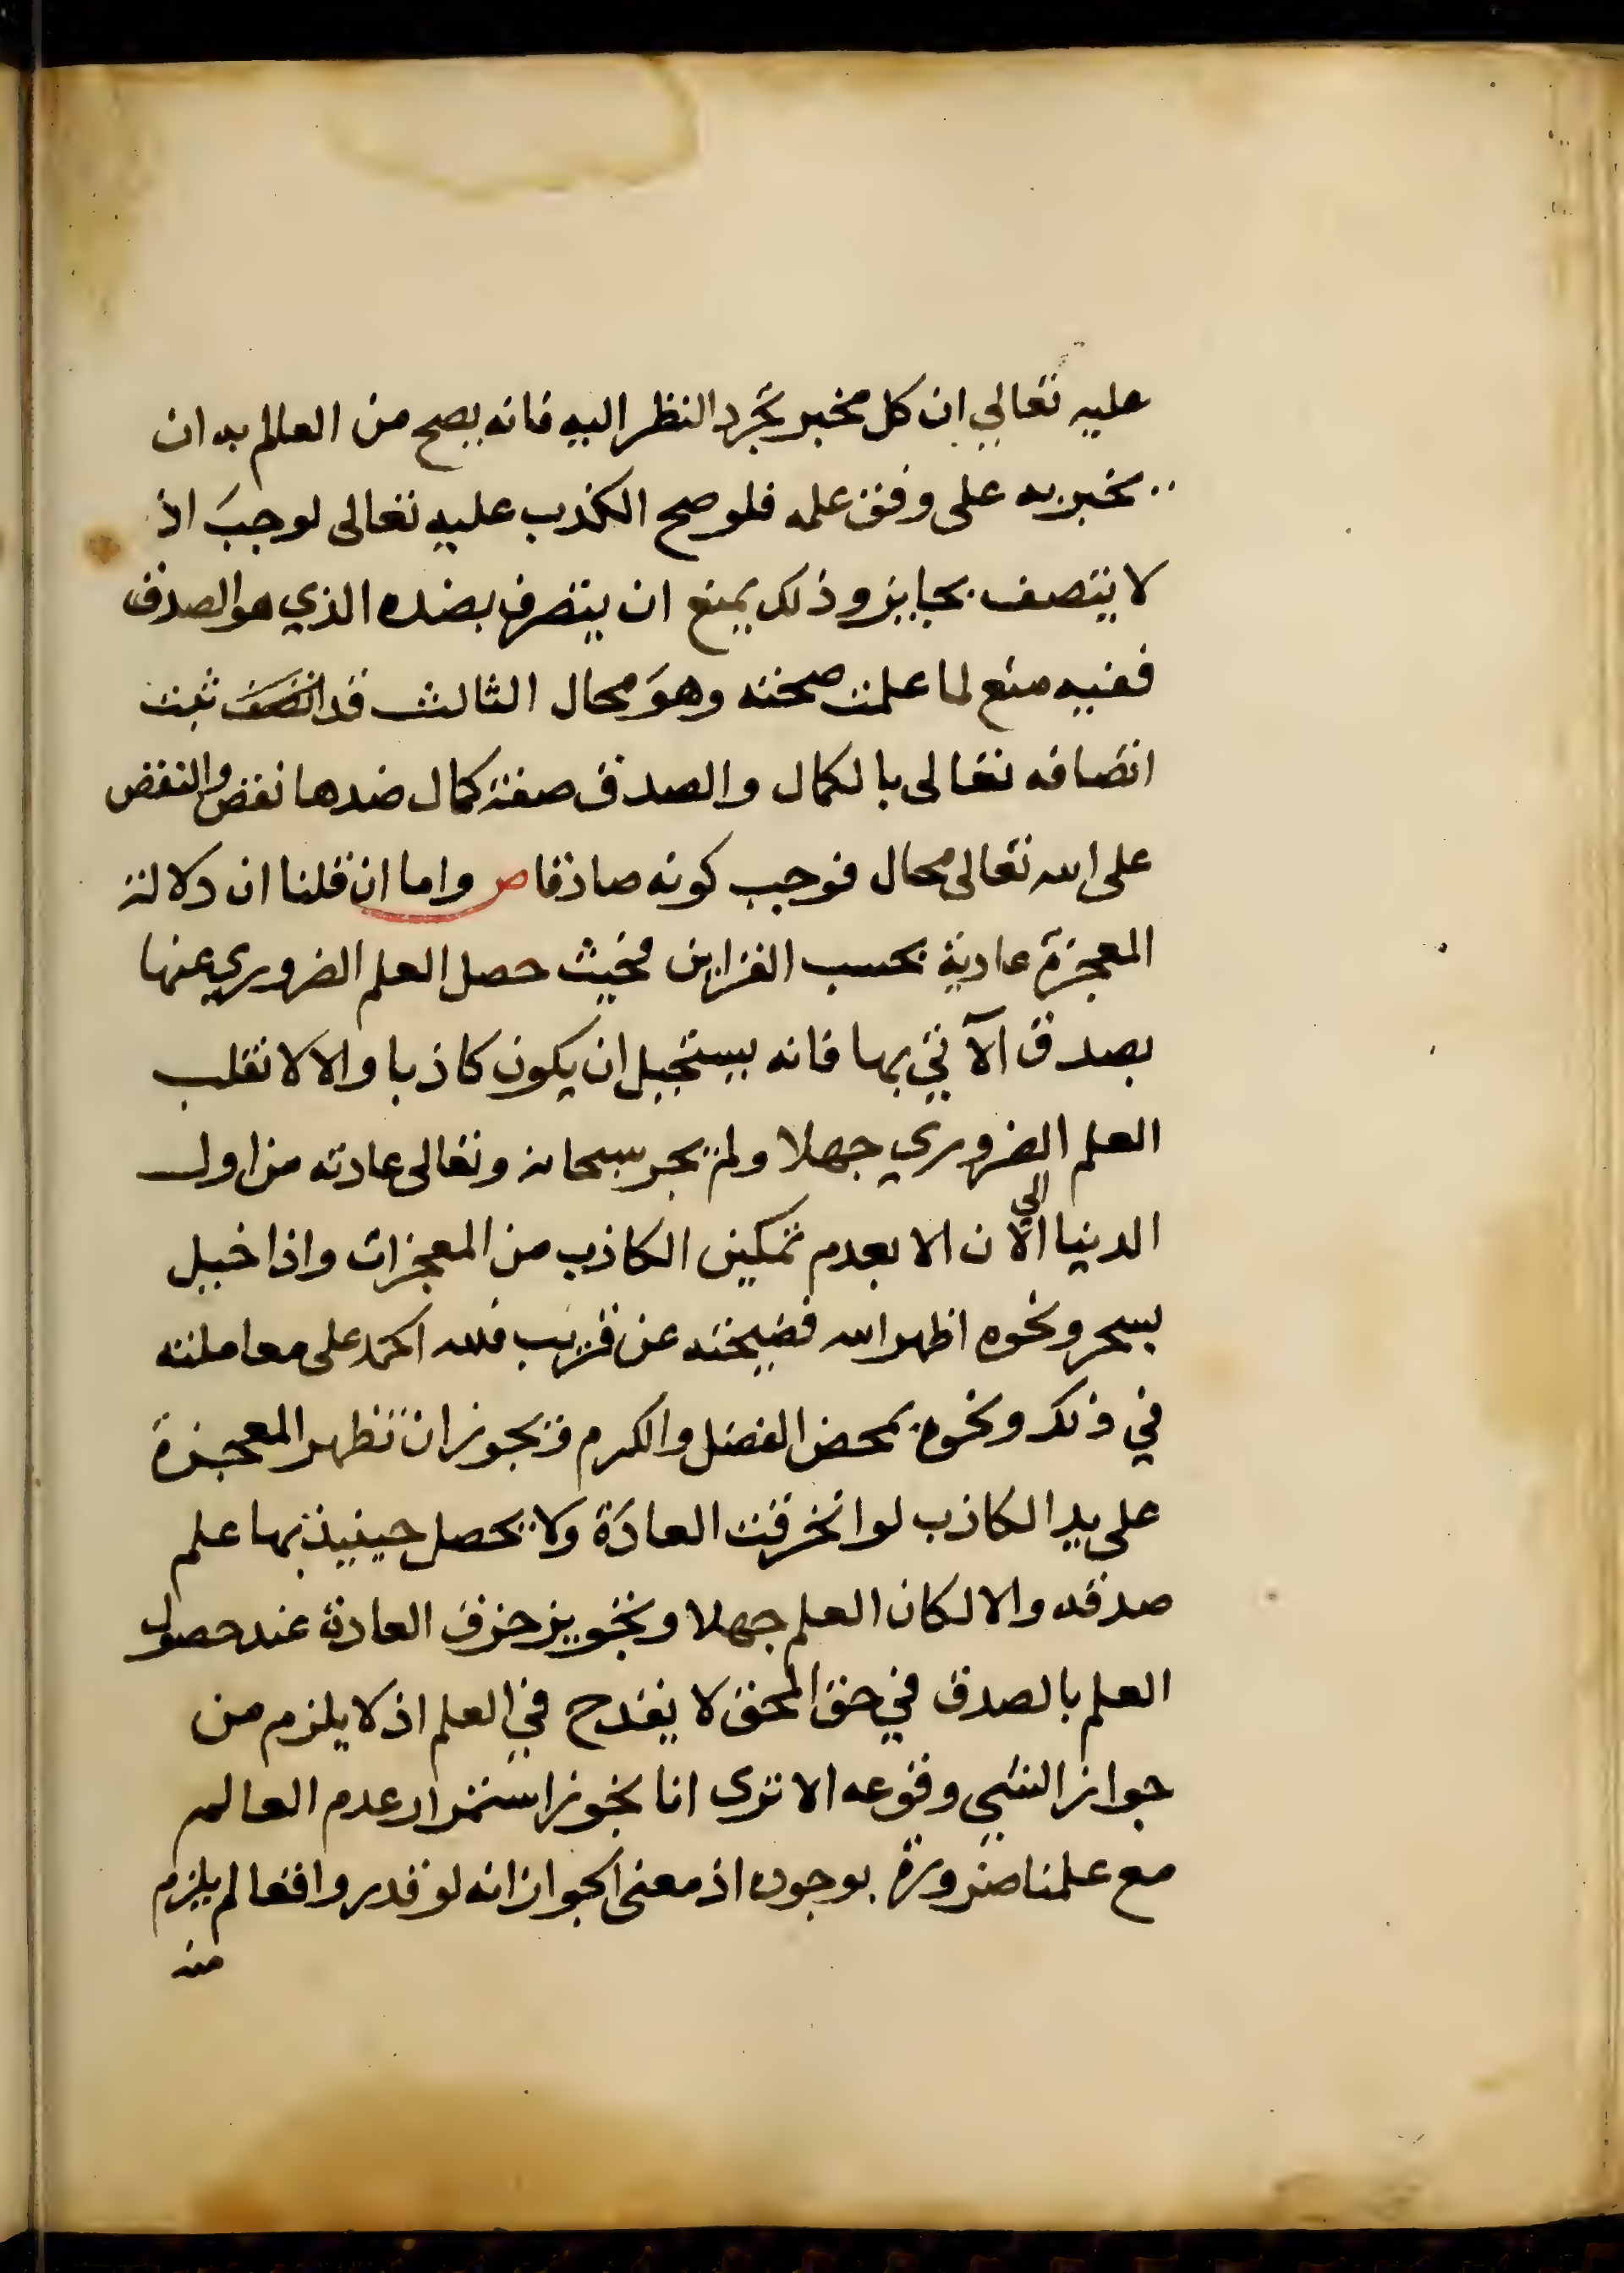 عليه تعالي ان كل مخبر تجرد النظر اليه فانه يصح من العالم به ان
يخبر به على وفق علمه فلو صح الكذب عليه تعالى لوجب اذ
لا يتصف بجايز وذلك يمنع ان يتصف بضده الذي هو الصدق
ففيه منع لما علمت صحته وهو محال الثالث قد ثبت
اتصافه تعالى بالكمال والصدق صفة كمال ضدها نقض والنقض
على الله تعالى محال فوجب كونه صادقا ص واما ان قلنا ان دلالة
المعجزة عادية بحسب القراين فحيث حصل العلم الضروري عنها
بصدق الآتي بها فانه يستحيل ان يكون كاذبا والا لانقلب
العلم الضروري جهلا ولم يجر سبحانه وتعالى عادته من اول
الدنيا الى الان الا بعدم تمكين الكاذب من المعجزات واذا خيل
بسحر ونحوه اظهر الله فضيحته عن قريب فلله الحمد على معاملته
في ذلك ونحوه بمحض الفضل والكرم ويجوز ان تظهر المعجزة
على يد الكاذب لو انخرقت العادة ولا يحصل حينيذ بها علم
صدقه والا لكان العلم جهلا وتجويز خرق العادة عند حصول
العلم بالصدق في حق المحق لا يقدح في العلم اذ لا يلزم من
جواز الشي وقوعه الا ترى انا نجوز استمرار عدم العالم
مع علمنا ضرورة بوجوده اذ معنى الجواز انه لو قدر واقعا لم يلزم
منه